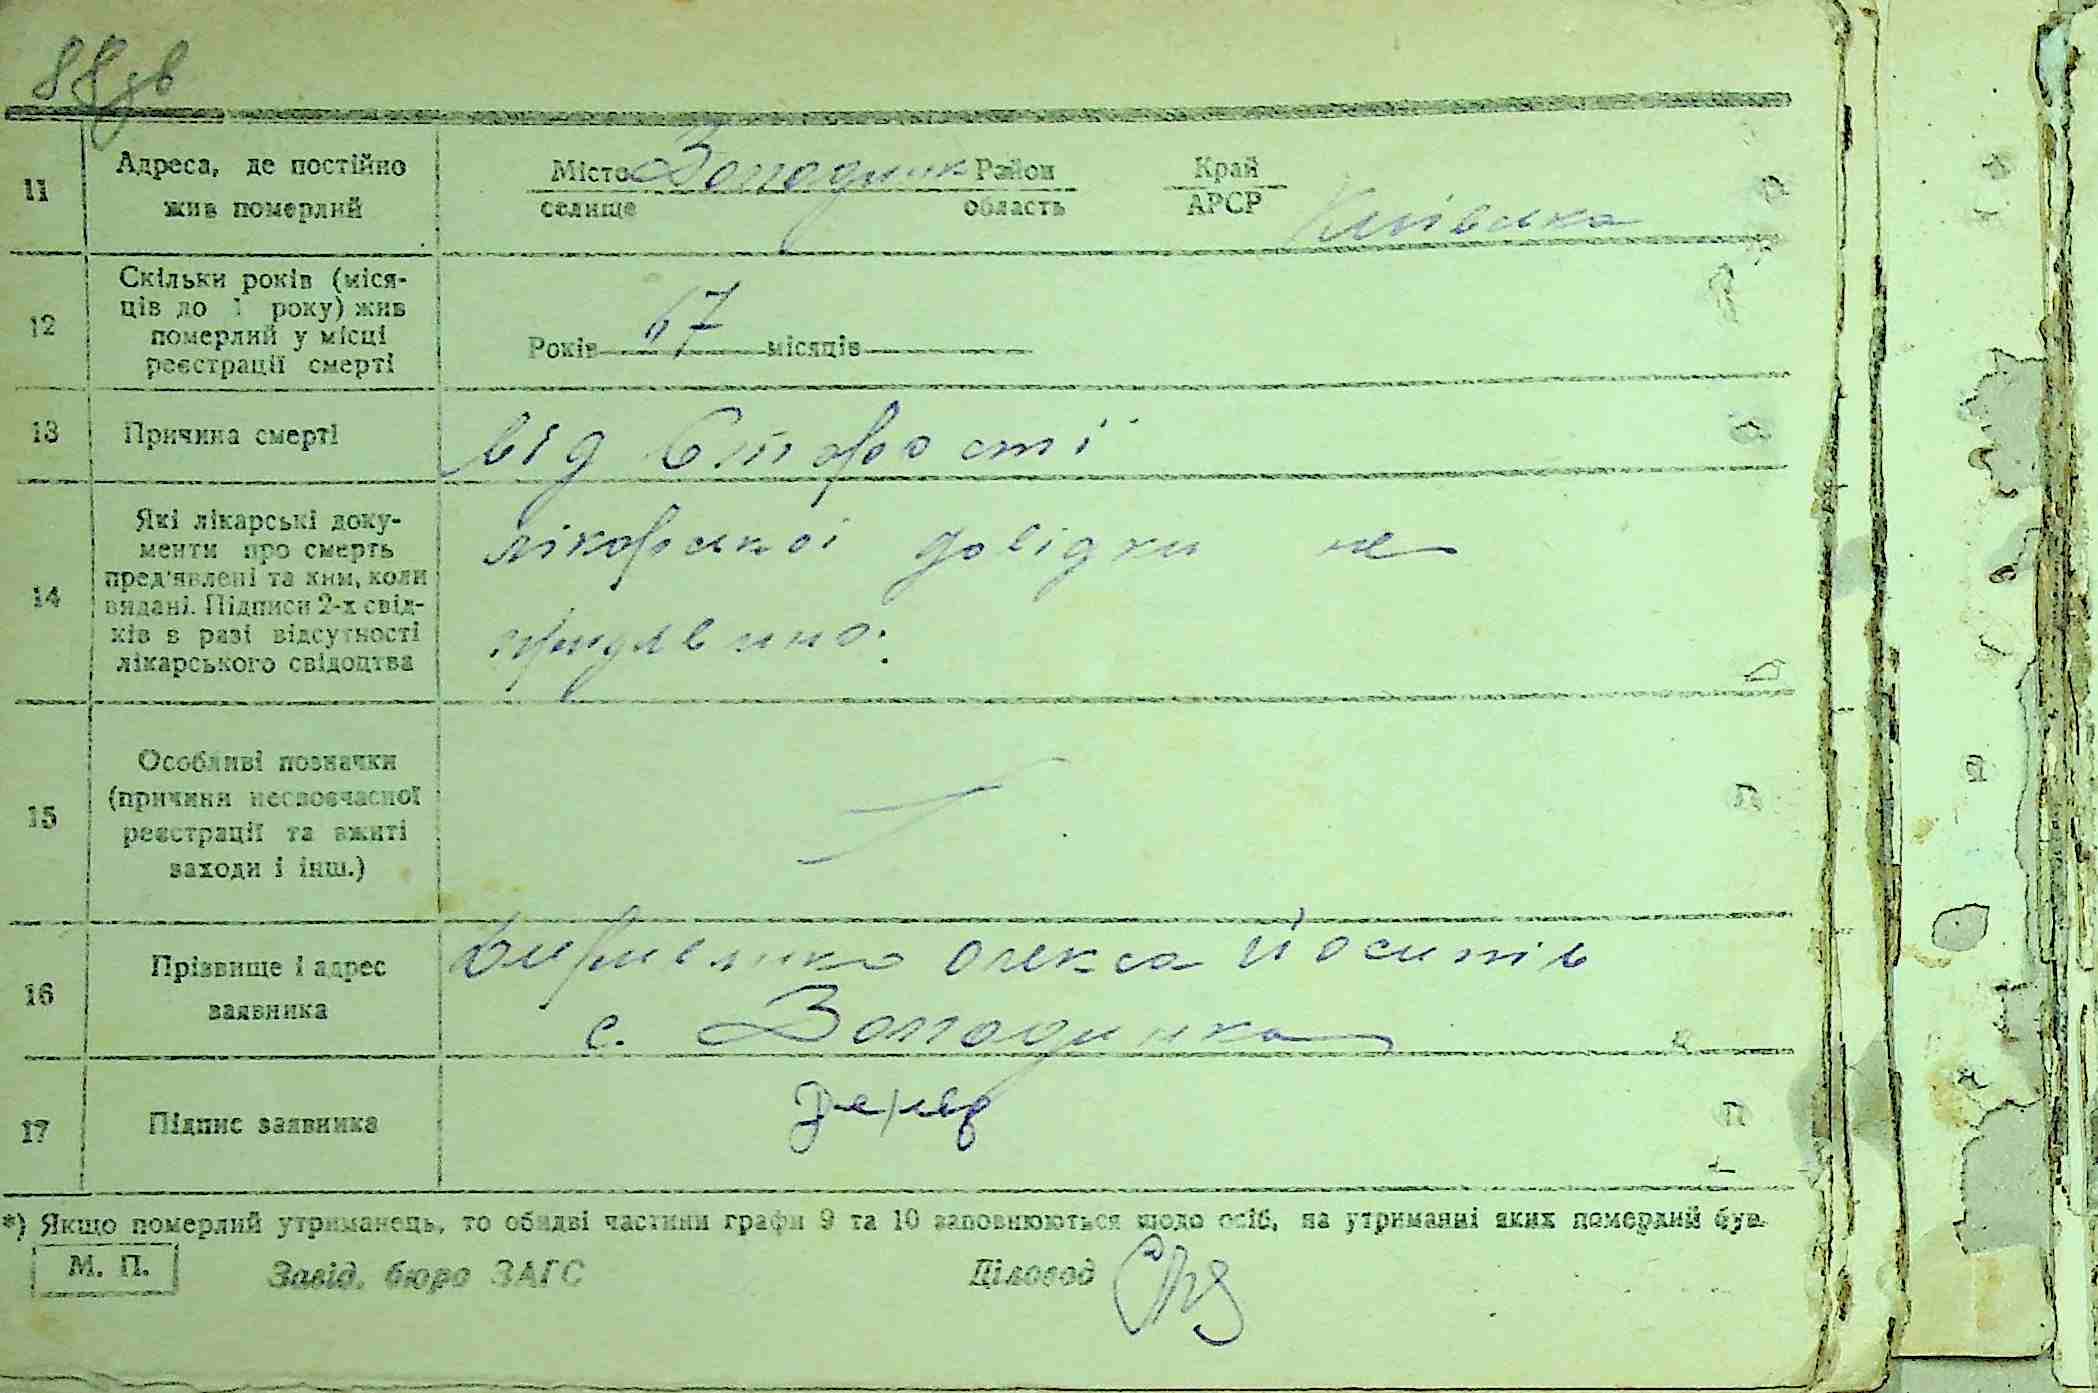 88зв
11 Адреса, де постійно жив померлий
Місто Володимк Район Край
селище область АРСР Київська
12 Скільки років (міся-
ців до 1 року) жив
померлий у місці
реєстрації смерті
Років 67 місяців
13 Причина смерті від старості
14 Які лікарські доку-
менти про смерть
пред'явлені та ким, коли
видані. Підписи 2-х свід-
ків в разі відсутності
лікарського свідоцтва
лікарської довідки не
придявлино.
15 Особливі позначки
(причини несвоєчасної
реєстрації та вжиті
заходи і інш.)
16 Прізвище і адрес
заявника
Олекса Йосипів
с. Володимка
17 Підпис заявника
*) Якщо померлий утриманець, то обидві частини графи 9 та 10 заповнюються щодо осіб, на утриманні яких померлий був.
М. П. Завід. бюро ЗАГС Діловод